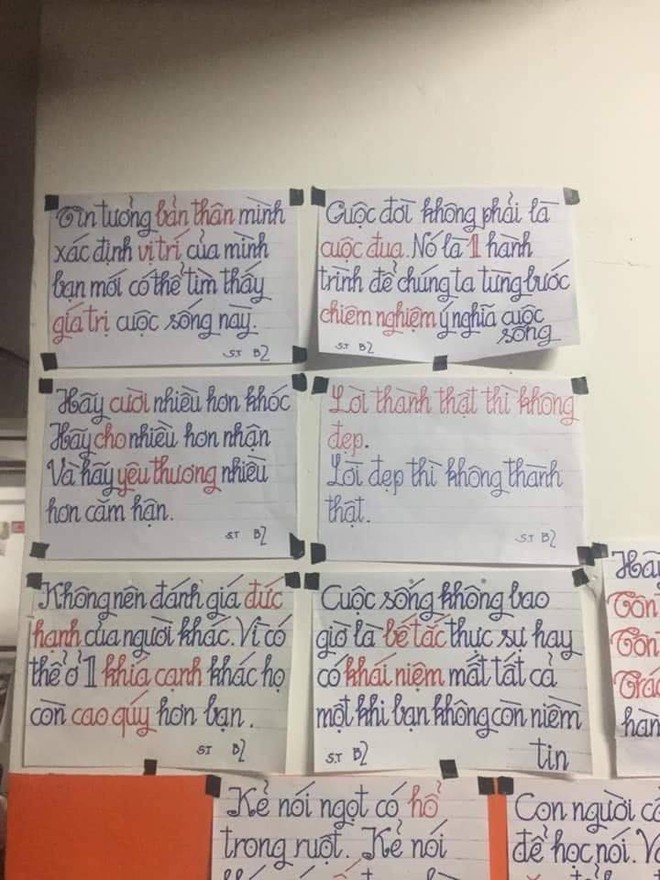 Tin tưởng bản thân mình
xác định vị trí của mình
bạn mới có thể tìm thấy
giá trị cuộc sống này.
S.T B2
Cuộc đời không phải là
cuộc đua. Nó là 1 hành
trình để chúng ta từng bước
chiêm nghiệm ý nghĩa cuộc
sống
S.T B2
Hãy cười nhiều hơn khóc
Hãy cho nhiều hơn nhận
Và hãy yêu thương nhiều
hơn căm hận.
S.T B2
Lời thành thật thì không
đẹp.
Lời đẹp thì không thành
thật.
S.T B2
Không nên đánh giá đức
hạnh của người khác. Vì có
thể ở 1 khía cạnh khác họ
còn cao quý hơn bạn.
S.T B2
Cuộc sống không bao
giờ là bế tắc thực sự hay
có khái niệm mất tất cả
một khi bạn không còn niềm
tin
S.T B2
Hãy
Tôn
Tôn
hàn
Kẻ nói ngọt có hổ
trong ruột. Kẻ nói
Con người c
để học nói. V